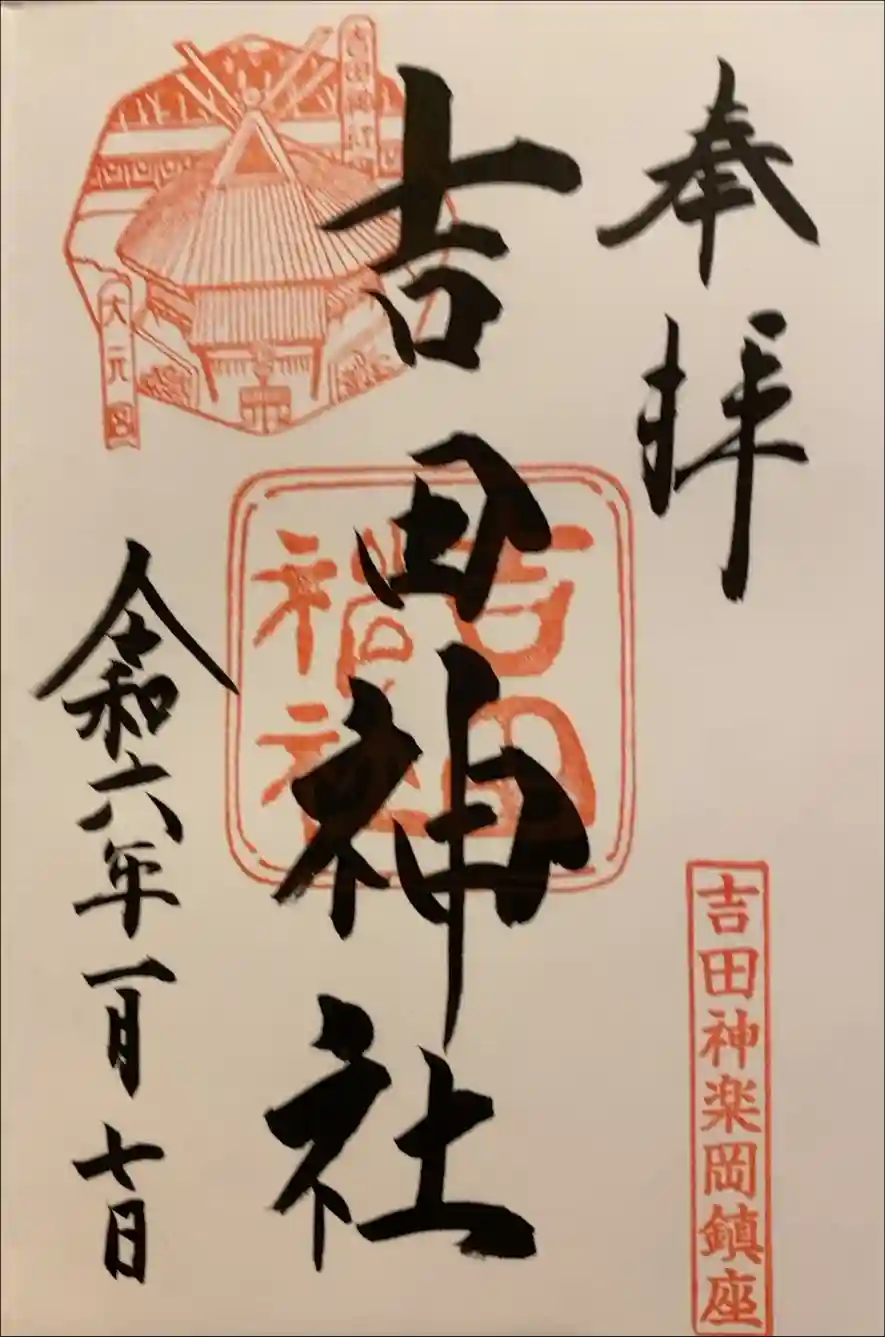 奉拝
吉田神楽岡鎮座
吉田神社
吉田
神社
吉田神社
大元宮
令和六年一月七日